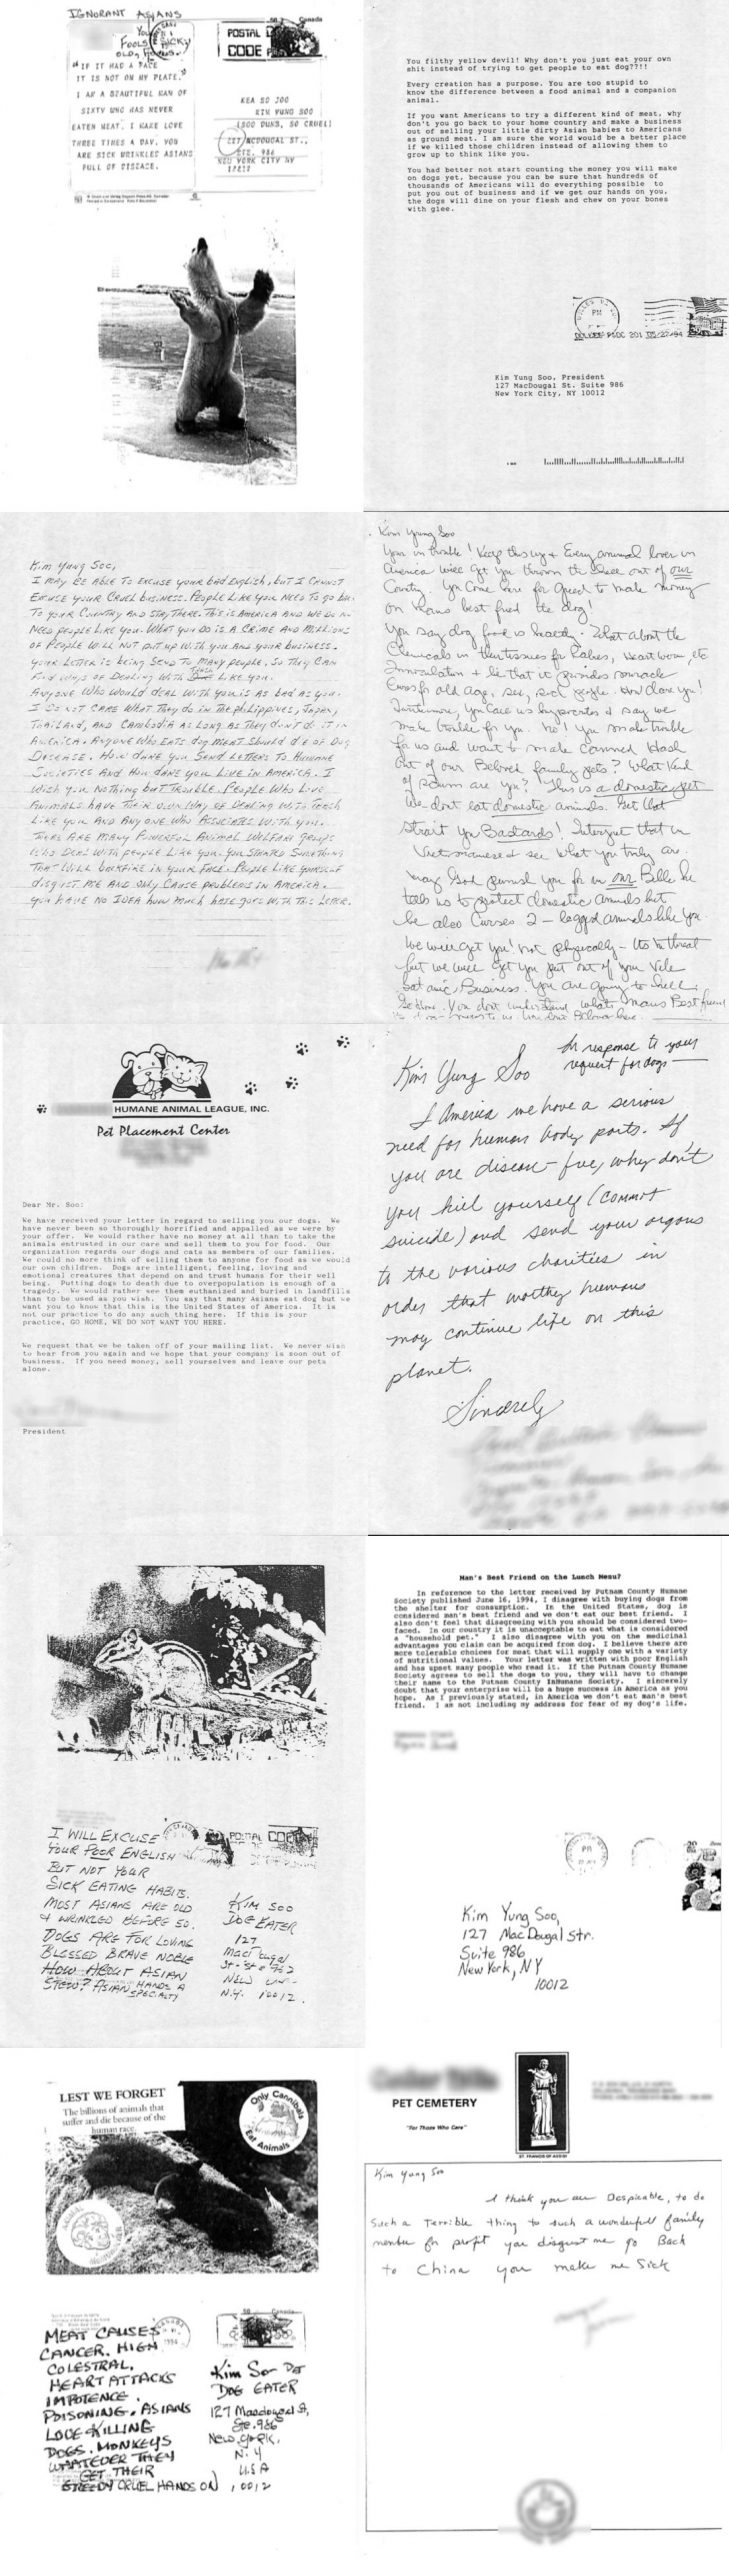 IGNORANT ASIANS
You
FOOLS SICKY
OLD
"IF IT HAD A FACE
IT IS NOT ON MY PLATE."
I AM A BEAUTIFUL MAN OF
SIXTY WHO HAS NEVER
EATEN MEAT. I MAKE LOVE
THREE TIMES A DAY. YOU
ARE SICK WRINKLED ASIANS
FULL OF DISEASE.
Canada
POSTAL
CODE
KEA SO JOO
KIM YUNG SOO
(SOO DUMB, SO CRUEL)
127 MACDOUGAL ST.,
STE. 986
NEW YORK CITY NY
You filthy yellow devil! Why don't you just eat your own
shit instead of trying to get people to eat dog??!!
Every creation has a purpose. You are too stupid to
know the difference between a food animal and a companion
animal.
If you want Americans to try a different kind of meat, why
don't you go back to your home country and make a business
out of selling your little dirty Asian babies to Americans
as ground meat. I am sure the world would be a better place
if we killed those children instead of allowing them to
grow up to think like you.
You had better not start counting the money you will make
on dogs yet, because you can be sure that hundreds of
thousands of Americans will do everything possible to
put you out of business and if we get our hands on you,
the dogs will dine on your flesh and chew on your bones
with glee.
PM
P&DC 201 05/27/94
Kim Yung Soo, President
127 MacDougal St. Suite 986
New York City, NY 10012
Kim Yung Soo,
I MAY BE ABLE TO EXCUSE YOUR bAd ENGLISH, bUT I CANNOT
EXCUSE YOUR CRUEL busINESS. PEOPLE LIKE YOU NEED TO go bAck
TO YOUR COUNTRY AND STAY THERE. THIS IS AMERICA AND WE DO NOT
NEEd pEOplE LIKE YOU. WHAT YOU DO IS A CRIME AND MILLIONS
OF PEOPLE WILL NOT PUT UP WITH YOU AND YOUR BUSINESS.
YOUR LETTER IS bEING SENd TO MANY pEOplE, SO THEY CAN
FINd WAYS OF DEALING WITH TRASH LIKE YOU.
ANYONE WHO WOULD dEAL WITH YOU IS AS bAd AS YOU.
I dO NOT CARE WHAT THEY dO IN THE PHILIPPINES, JAPAN,
THAILAND, AND CAMBODIA AS LONG AS THEY dON'T dO IT IN
AMERICA. ANYONE WHO EATS dOg MEAT SHOULD dIE OF DOg
DISEASE. HOW dARE YOU SENd LETTERS TO HUMANE
SOCIETIES AND HOW dARE YOU LIVE IN AMERICA. I
WISH YOU NOTHING bUT TROUBLE. PEOPLE WHO LOVE
ANIMALS HAVE THEIR OWN WAY OF DEALING WITH TRASH
LIKE YOU AND ANY ONE WHO ASSOCIATES WITH YOU.
THERE ARE MANY POWERFUL ANIMAL WELFARE GROUPS
WHO DEAL WITH pEOplE LIKE YOU. YOU STARTED SOMETHING
THAT WILL bACKFIRE IN YOUR FACE. PEOPLE LIKE YOURSELF
disgUST ME AND ONLY CAUSE pROblEMS IN AMERICA.
YOU HAVE NO IDEA HOW MUCH HATE gOES WITH THIS LETTER.
Kim Young Soo
Your in trouble! Keep this up & Every animal lover in
America will get you thrown the Hell out of our
Country. You Come here for greed to make money
on Mans best friend the dog!
You say dog food is healthy. What about the
Chemicals in their tissues for Rabies, Heart worm, etc
Innoculation & lie that it provides miracle
Cures for old age, sex, sick people. How dare you!
Furthermore, you call us hypocrites & say we
make trouble for you. No! You make trouble
for us and want to make canned Hash
out of our Beloved family pets? What Kind
of scum are you? This is a domestic pet
We dont eat domestic animals. Get that
strait you Bastards! Interpret that in
Vietnamese & see What you truly are.
May God punish you for in our Bible he
tells us to protect domestic animals but
he also Curses 2-legged animals like you
We will get you! not physically - its no threat
but we will get you put out of your Vile
Satanic Business. You are going to hell.
You dont understand what Mans Best friend
HUMANE ANIMAL LEAGUE, INC.
Pet Placement Center
Dear Mr. Soo:
We have received your letter in regard to selling you our dogs. We
have never been so thoroughly horrified and appalled as we were by
your offer. We would rather have no money at all than to take the
animals entrusted in our care and sell them to you for food. Our
organization regards our dogs and cats as members of our families.
We could no more think of selling them to anyone for food as we would
our own children. Dogs are intelligent, feeling, loving and
emotional creatures that depend on and trust humans for their well
being. Putting dogs to death due to overpopulation is enough of a
tragedy. We would rather see them euthanized and buried in landfills
than to be used as you wish. You say that many Asians eat dog but we
want you to know that this is the United States of America. It is
not our practice to do any such thing here. If this is your
practice, GO HOME, WE DO NOT WANT YOU HERE.
We request that we be taken off of your mailing list. We never wish
to hear from you again and we hope that your company is soon out of
business. If you need money, sell yourselves and leave our pets
alone.
President
In response to your
request for dogs —
Kim Yung Soo
I America we have a serious
need for human body parts. If
you are disease-free, why don't
you kill yourself (commit
suicide) and send your organs
to the various charities in
order that worthy humans
may continue life on this
planet.
Sincerely
I WILL EXCUSE
YOUR POOR ENGLISH
BUT NOT YOUR
SICK EATING HABITS.
MOST ASIANS ARE OLD
& WRINKLED BEFORE 50.
DOGS ARE FOR LOVING
BLESSED BRAVE NOBLE
HOW ABOUT ASIAN
STEW? ASIAN HANDS A
SPECIALTY
POSTAL CODE
KIM SOO
DOG EATER
127
MacDougal
St - Ste 962
NEW
N.Y. 10012.
Man's Best Friend on the Lunch Menu?
In reference to the letter received by Putnam County Humane
Society published June 16, 1994, I disagree with buying dogs from
the shelter for consumption. In the United States, dog is
considered man's best friend and we don't eat our best friend. I
also don't feel that disagreeing with you should be considered two-
faced. In our country it is unacceptable to eat what is considered
a "household pet." I also disagree with you on the medicinal
advantages you claim can be acquired from dog. I believe there are
more tolerable choices for meat that will supply one with a variety
of nutritional values. Your letter was written with poor English
and has upset many people who read it. If the Putnam County Humane
Society agrees to sell the dogs to you, they will have to change
their name to the Putnam County InHumane Society. I sincerely
doubt that your enterprise will be a huge success in America as you
hope. As I previously stated, in America we don't eat man's best
friend. I am not including my address for fear of my dog's life.
PM
Kim Yung Soo,
127 MacDougal Str.
Suite 986
New York, NY
10012
LEST WE FORGET
The billions of animals that
suffer and die because of the
human race.
Only Cannibals
Eat Animals
MEAT CAUSES
CANCER. HIGH
COLESTRAL.
HEART ATTACKS
IMPOTENCE.
POISONING. ASIANS
LOVE KILLING
DOGS. MONKEYS
WHATEVER THEY
GET THEIR
GREEDY CRUEL HANDS ON
CANADA
1994
Canada
Kim Soo
DOG EATER
127 Macdougal St,
Ste. 986
New York,
N.Y
U.S.A
10012
PET CEMETERY
"For Those Who Care"
ST. FRANCIS OF ASSISI
Kim Yung Soo
I think you are Despicable, to do
Such a Terrible thing to such a wonderfull family
member for profit you disgust me go Back
to China you make me Sick